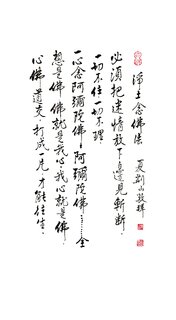 淨土念佛法
夏荊山敬撰
必須把迷情放下自邊見斬斷
一切不住一切不理
一心念阿彌陀佛阿彌陀佛……全
想是佛佛就是我心我心就是佛
心佛道交打成一片才能往生